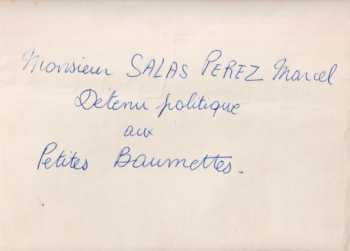 Monsieur SALAS PEREZ Marcel
Détenu politique
aux
Petites Baumettes.